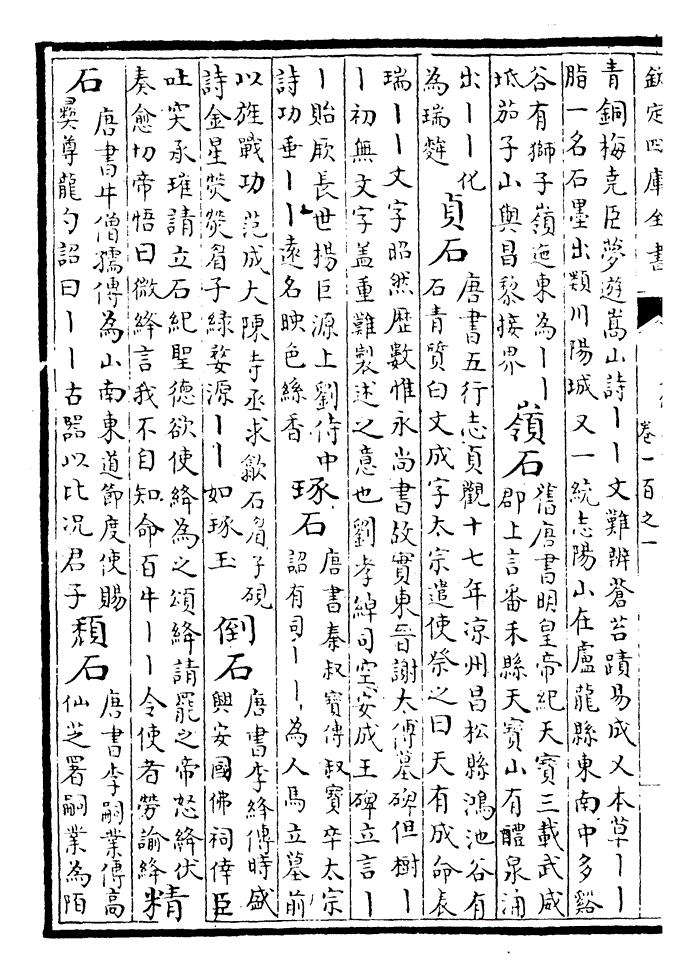 欽定四庫全書
卷一百之一
青銅梅堯臣夢遊嵩山詩丨丨文難辨蒼苔蹟易成又本草丨丨
脂一名石墨出顥川陽城又一統志陽山在盧龍縣東南中多谿
谷有獅子嶺迤東為丨丨
坻茄子山與昌黎接界
嶺石
舊唐書明皇帝紀天寶三載武威
郡上言番禾縣天寶山有醴泉湧
出丨丨化
為瑞麰
貞石
唐書五行志貞觀十七年涼州昌松縣鴻池谷有
石青質白文成字太宗遣使祭之曰天有成命表
瑞丨丨文字昭然歷數惟永尚書故實東晉謝太傅墓碑但樹丨
丨初無文字蓋重難製述之意也劉孝綽司空安成王碑立言丨
丨貽厥長世楊巨源上劉侍中
詩功垂丨丨遠名映色絲香
琢石
唐書秦叔寶傳叔寶卒太宗
詔有司丨丨為人馬立墓前
以旌戰功范成大陳寺丞求歙石眉子硯
詩金星熒熒眉子綠婺源丨丨如琢玉
倒石
唐書李絳傳時盛
興安國佛祠倖臣
吐突承璀請立石紀聖德欲使絳為之頌絳請罷之帝怒絳伏
奏愈切帝悟曰微絳言我不自知命百牛丨丨令使者勞諭絳
精
石
唐書牛僧孺傳為山南東道節度使賜
彛尊龍勺詔曰丨丨古器以比况君子
頹石
唐書李嗣業傳高
仙芝署嗣業為陌